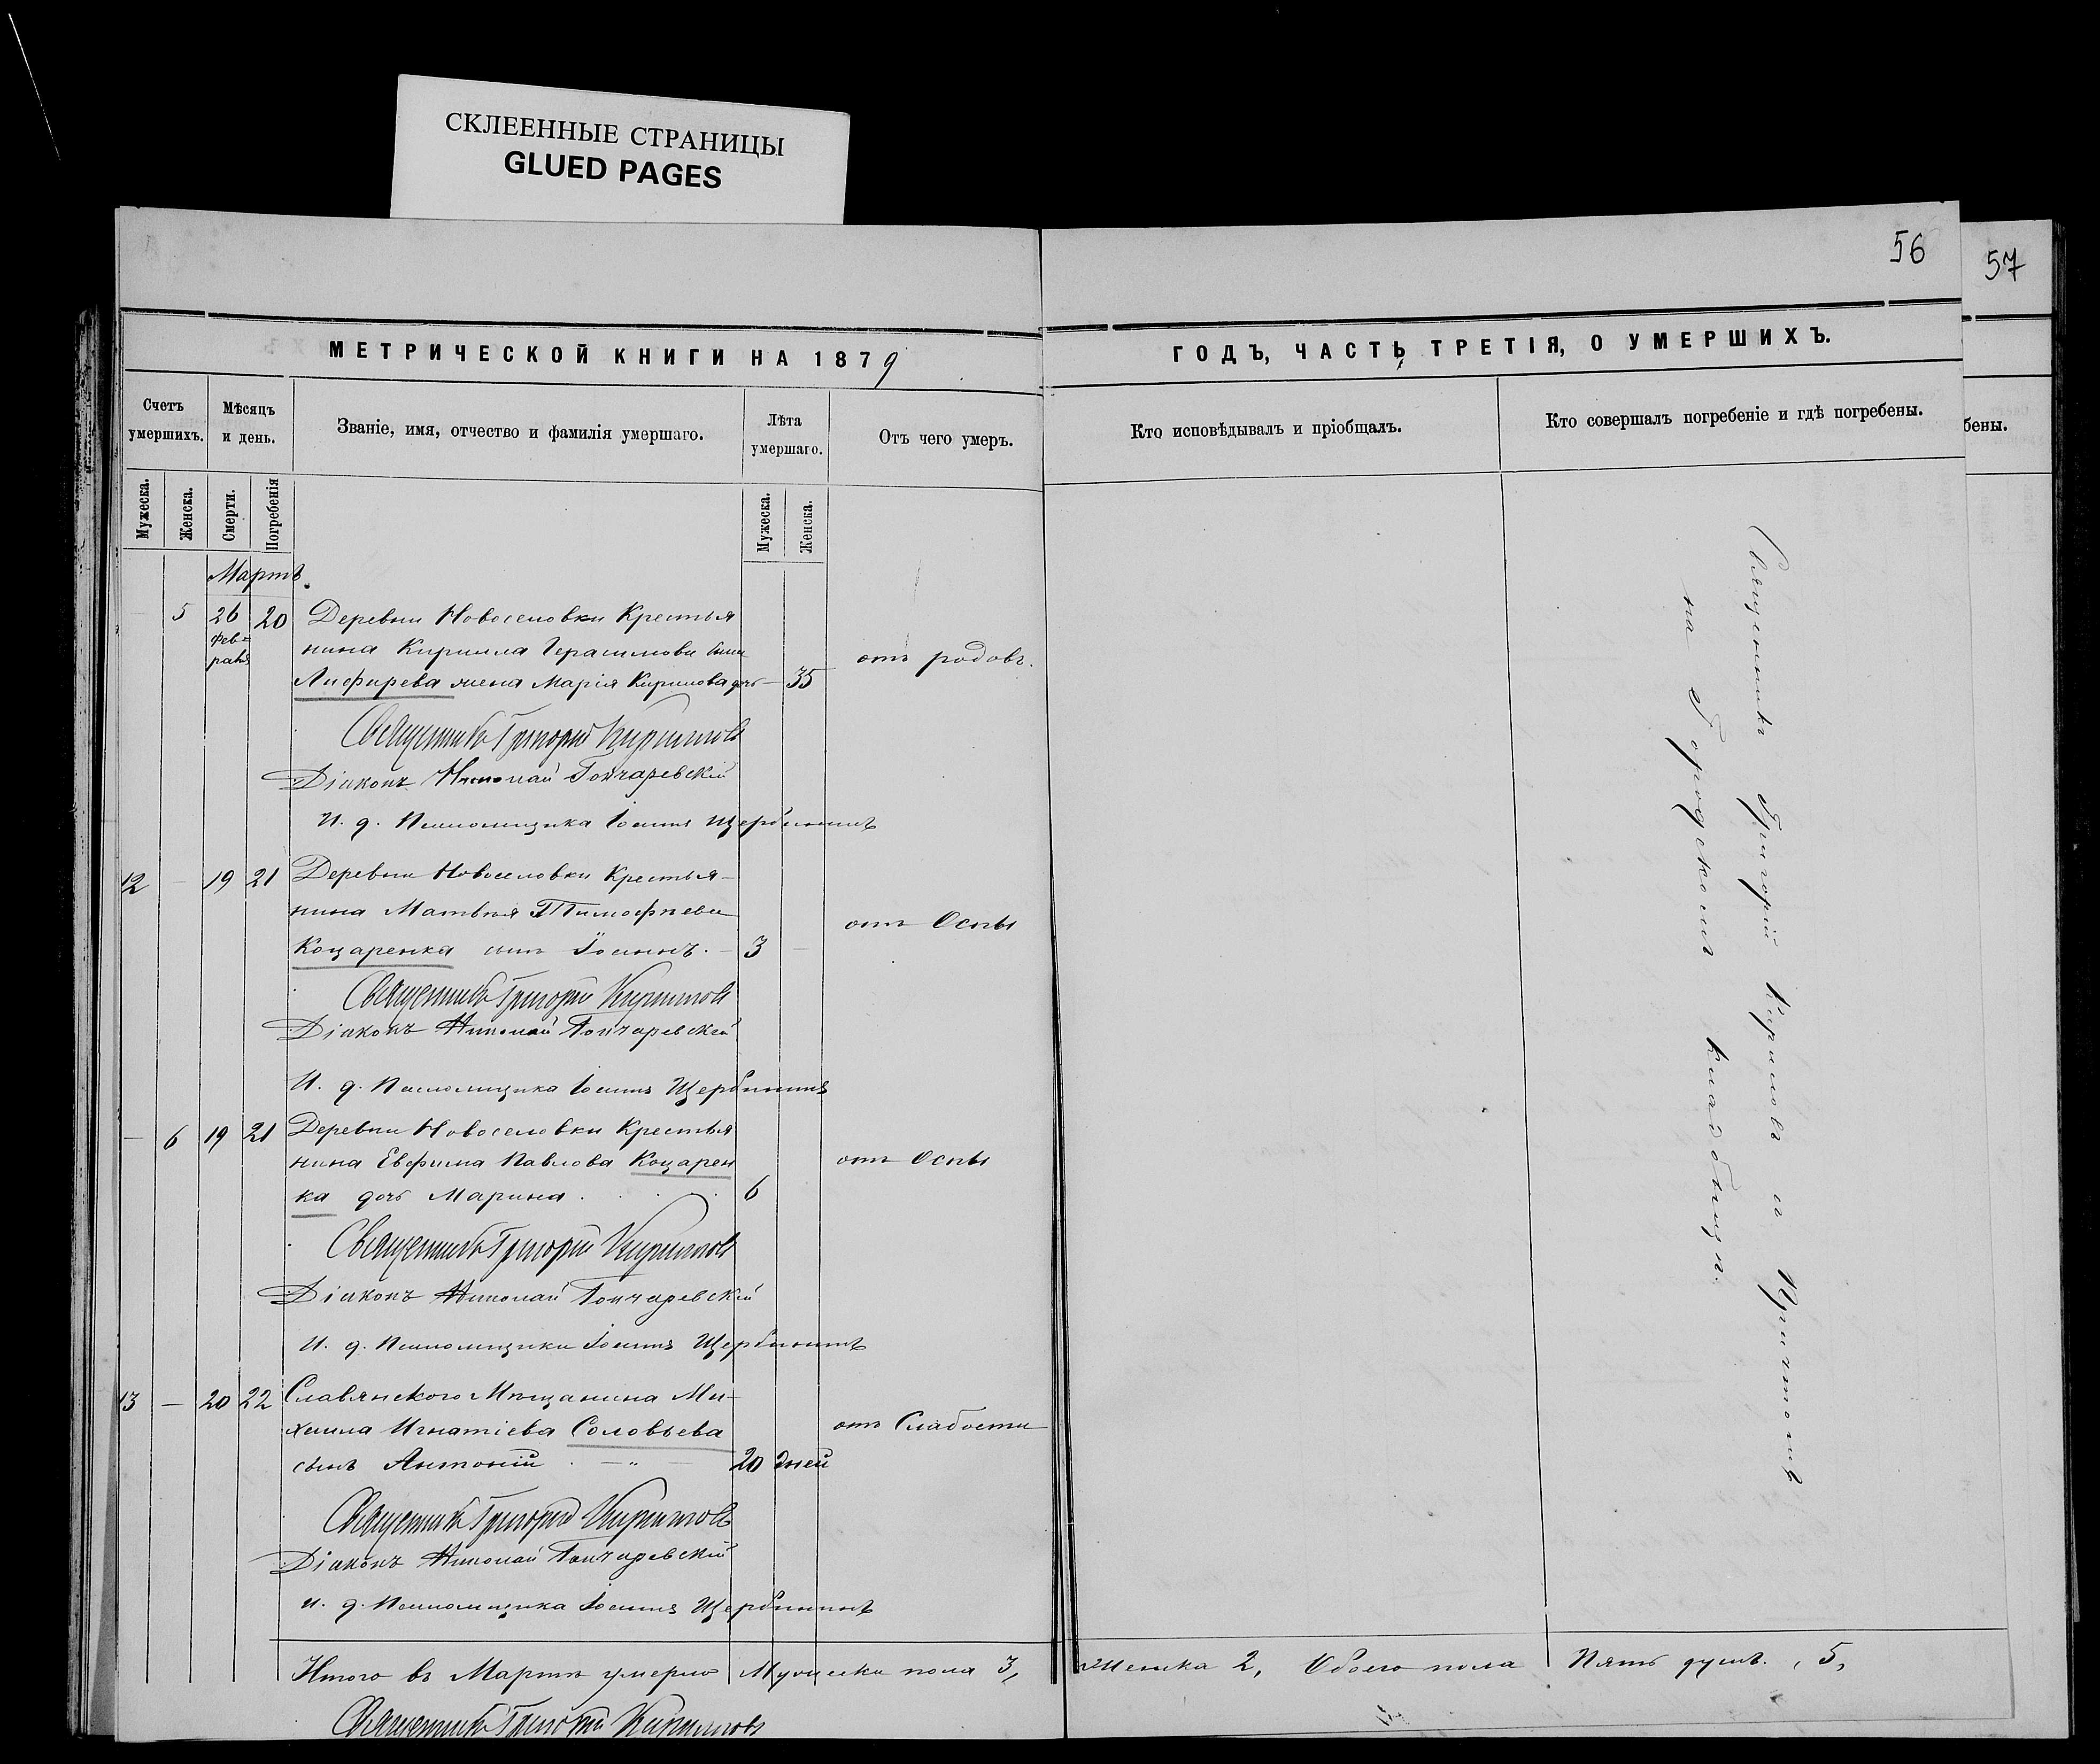 СКЛЕЕННЫЕ СТРАНИЦЫ
GLUED PAGES
56
57
МЕТРИЧЕСКОЙ КНИГИ НА 1879
ГОДЪ, ЧАСТЬ ТРЕТІЯ, О УМЕРШИХЪ.
Счетъ умершихъ.
Мѣсяцъ и день.
Званіе, имя, отчество и фамилія умершаго.
Лѣта умершаго.
Отъ чего умеръ.
Кто исповѣдывалъ и пріобщалъ.
Кто совершалъ погребеніе и гдѣ погребены.
бены.
Мужеска.
Женска.
Смерти.
Погребенія
Мужеска.
Женска.
Мартъ
5 26 20 Деревни Новоселовки Крестья
фев=
раля
нина Кирилла Герасимова
отъ родовъ.
Анфирева жена Марія Кирилова дочь — 35
Священникъ Григорій Кириловъ
Діаконъ Николай Гончаревскій
И. д. Псаломщика Іоаннъ Щербининъ
12 — 19 21 Деревни Новоселовки Крестья-
нина Матвѣя Тимофѣева
отъ Оспы
Коцаренка сынъ Іоаннъ. — 3 —
Священникъ Григорій Кириловъ
Діаконъ Николай Гончаревскій
И. д. Псаломщика Іоаннъ Щербининъ
— 6 19 21 Деревни Новоселовки Крестья
нина Евфима Павлова Коцарен
отъ Оспы
ка дочь Марина . . . . 6
Священникъ Григорій Кириловъ
Діаконъ Николай Гончаревскій
И. д. Псаломщика Іоаннъ Щербининъ
13 — 20 22 Славянского Мѣщанина Ми-
хаила Игнатіева Соловьева
отъ Слабости
сынъ Антоній — „ — 20 дней
Священникъ Григорій Кириловъ
Діаконъ Николай Гончаревскій
И. д. Псаломщика Іоаннъ Щербининъ
Священникъ Григорій Кириловъ съ Причтомъ
на Городскомъ кладбищѣ.
Итого въ Мартѣ умерло Мужеска пола 3, Женска 2, Обоего пола Пять душъ. , 5,
Священникъ Григорій Кириловъ